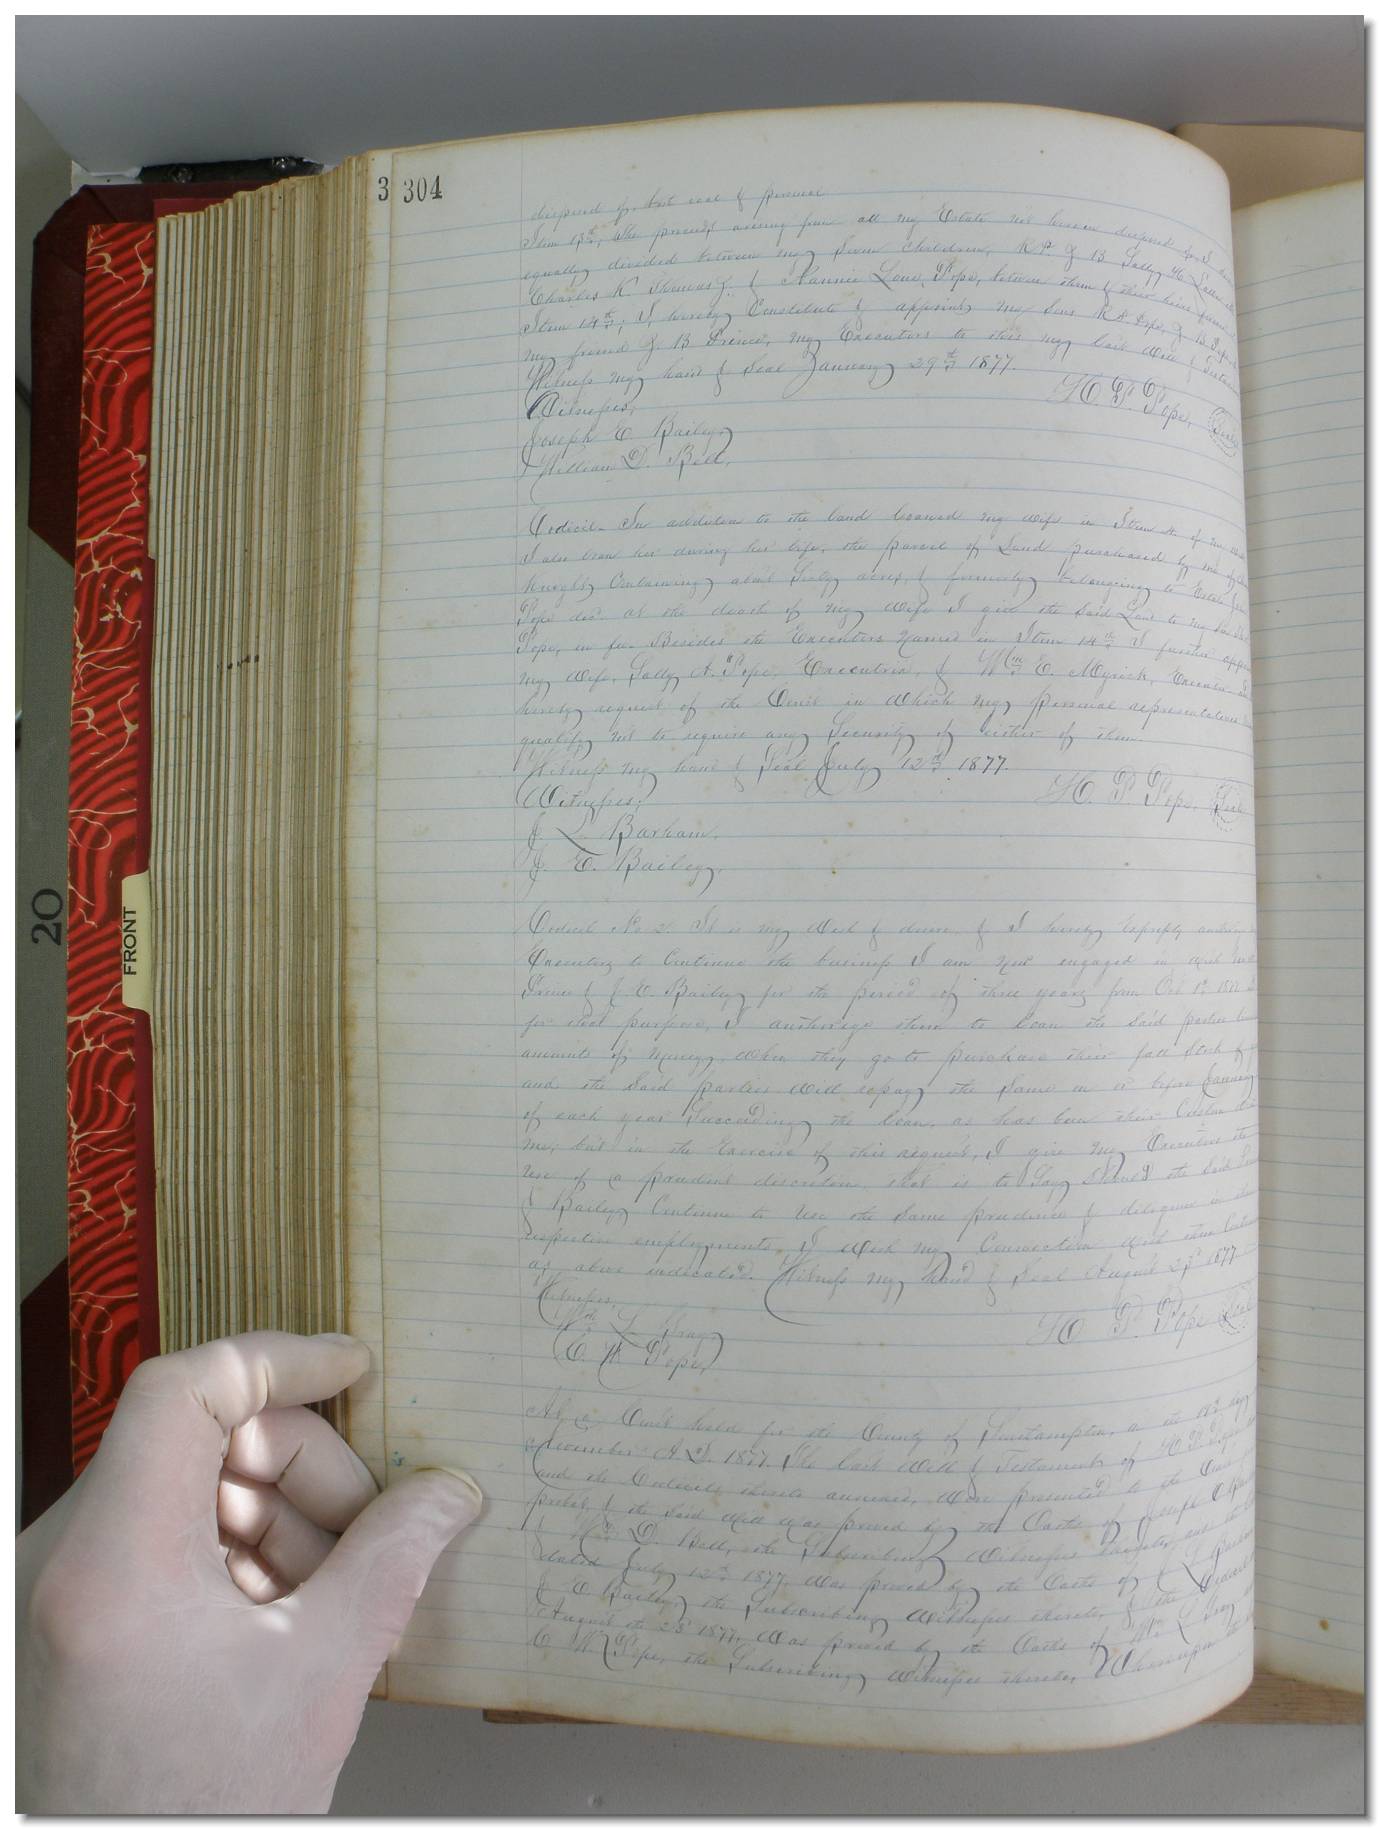 3 304
disposed of, both real & personal
Item 13th, The proceeds arising from all my Estate not herein disposed of, I
equally divided between my Seven Children, R P. J B Sally
Charles K Thomas J. & Nannie Lone Pope, between them & their heirs
Item 14th; I, hereby Constitute & appoint my Sons R P Pope, J. B Pope
my friend J. B Prince, my Executors to this my last Will &
Witness my hand & Seal January 29th 1877.
H. P. Pope, Seal
Witnesses,
Joseph E. Bailey,
William D. Bell,
Codicil- In addition to the land loaned my wife in Item 4 of my
I also loan her during her life, the parcel of Land purchased by me of
Containing about Sixty acres, & formerly belonging to Estate
Pope dec. at the death of my wife I give the said Land to my
Pope, in fee. Besides the Executors named in Item 14th I further
my wife, Sally A. Pope, Executrix, & Wm E. Myrick, Executor
hereby request of the Court in which my personal representatives
qualify not to require any Security of either of them.
Witness my hand & Seal July 12th 1877.
H. P. Pope, Seal
Witnesses,
J. L. Barham.
J. E. Bailey,
Codicil No 2. It is my Will & desire, & I hereby Expressly
Executors to Continue the business I am now engaged in with
Prince & J. E. Bailey for the period of three years from Oct 1st 1877
for that purpose, I authorize them to loan the said parties
amounts of money, when they go to purchase their fall Stock of
and the said parties will repay the same on or before January
of each year Succeeding the loan, as has been their Custom
me, but in the Exercise of this request, I give my Executors the
use of a prudent discretion, that is to Say, Should the said
& Bailey Continue to use the same prudence & diligence in
respective employments, I wish my Connection with them
as above indicated. Witness my hand & Seal August 23d 1877
Witnesses,
H. P. Pope Seal
Wm L. Gray
E. W Pope,
At a Court held for the County of Southampton, on the day
November A D. 1877. The last Will & Testament of H P Pope
and the Codicils thereto annexed, were presented to the Court
& the said Will was proved by the Oaths of Joseph E
& Wm D. Bell, the Subscribing Witnesses thereto, and the
dated July 12th 1877, was proved by the Oaths of J L Barham
J E Bailey, the Subscribing Witnesses thereto, & the Codicil
August the 23 1877, was proved by the Oaths of Wm L Gray
E W Pope, the Subscribing Witnesses thereto, Whereupon
FRONT
20